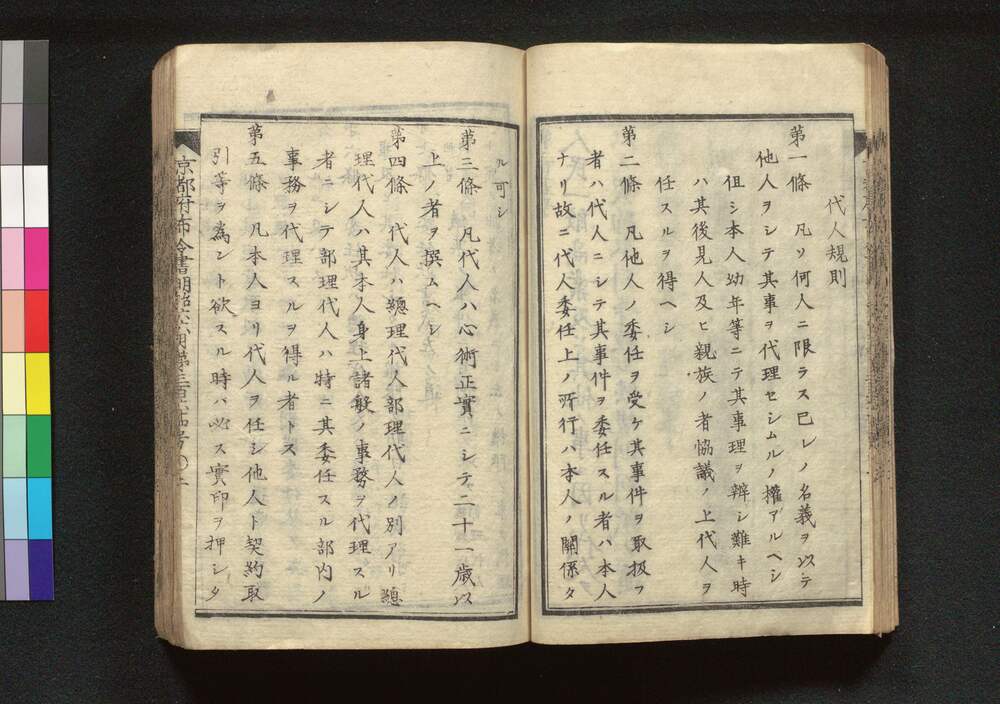 代人規則
第一條　凡ソ何人ニ限ラス已レノ名義ヲ以テ
他人ヲシテ其事ヲ代理セシムルノ權アルヘシ
伹シ本人幼年等ニテ其事理ヲ辨シ難キ時
ハ其後見人及ヒ親族ノ者協議ノ上代人ヲ
任スルヲ得ヘシ
第二條　凡他人ノ委任ヲ受ケ其事件ヲ取扱フ
者ハ代人ニシテ其事件ヲ委任スル者ハ本人
ナリ故ニ代人委任上ノ所行ハ本人ノ關係タ
ル可シ
第三條　凡代人ハ心術正實ニシテ二十一歳以
上ノ者ヲ撰ムヘシ
第四條　代人ハ總理代人部理代人ノ別アリ總
理代人ハ其本人身上諸般ノ事務ヲ代理スル
者ニシテ部理代人ハ特ニ其委任スル部内ノ
事務ヲ代理スルヲ得ル者トス
第五條　凡本人ヨリ代人ヲ任シ他人ト契約取
引等ヲ為ント欲スル時ハ必ス實印ヲ押シタ
京都府布令書明治六年第三百
号